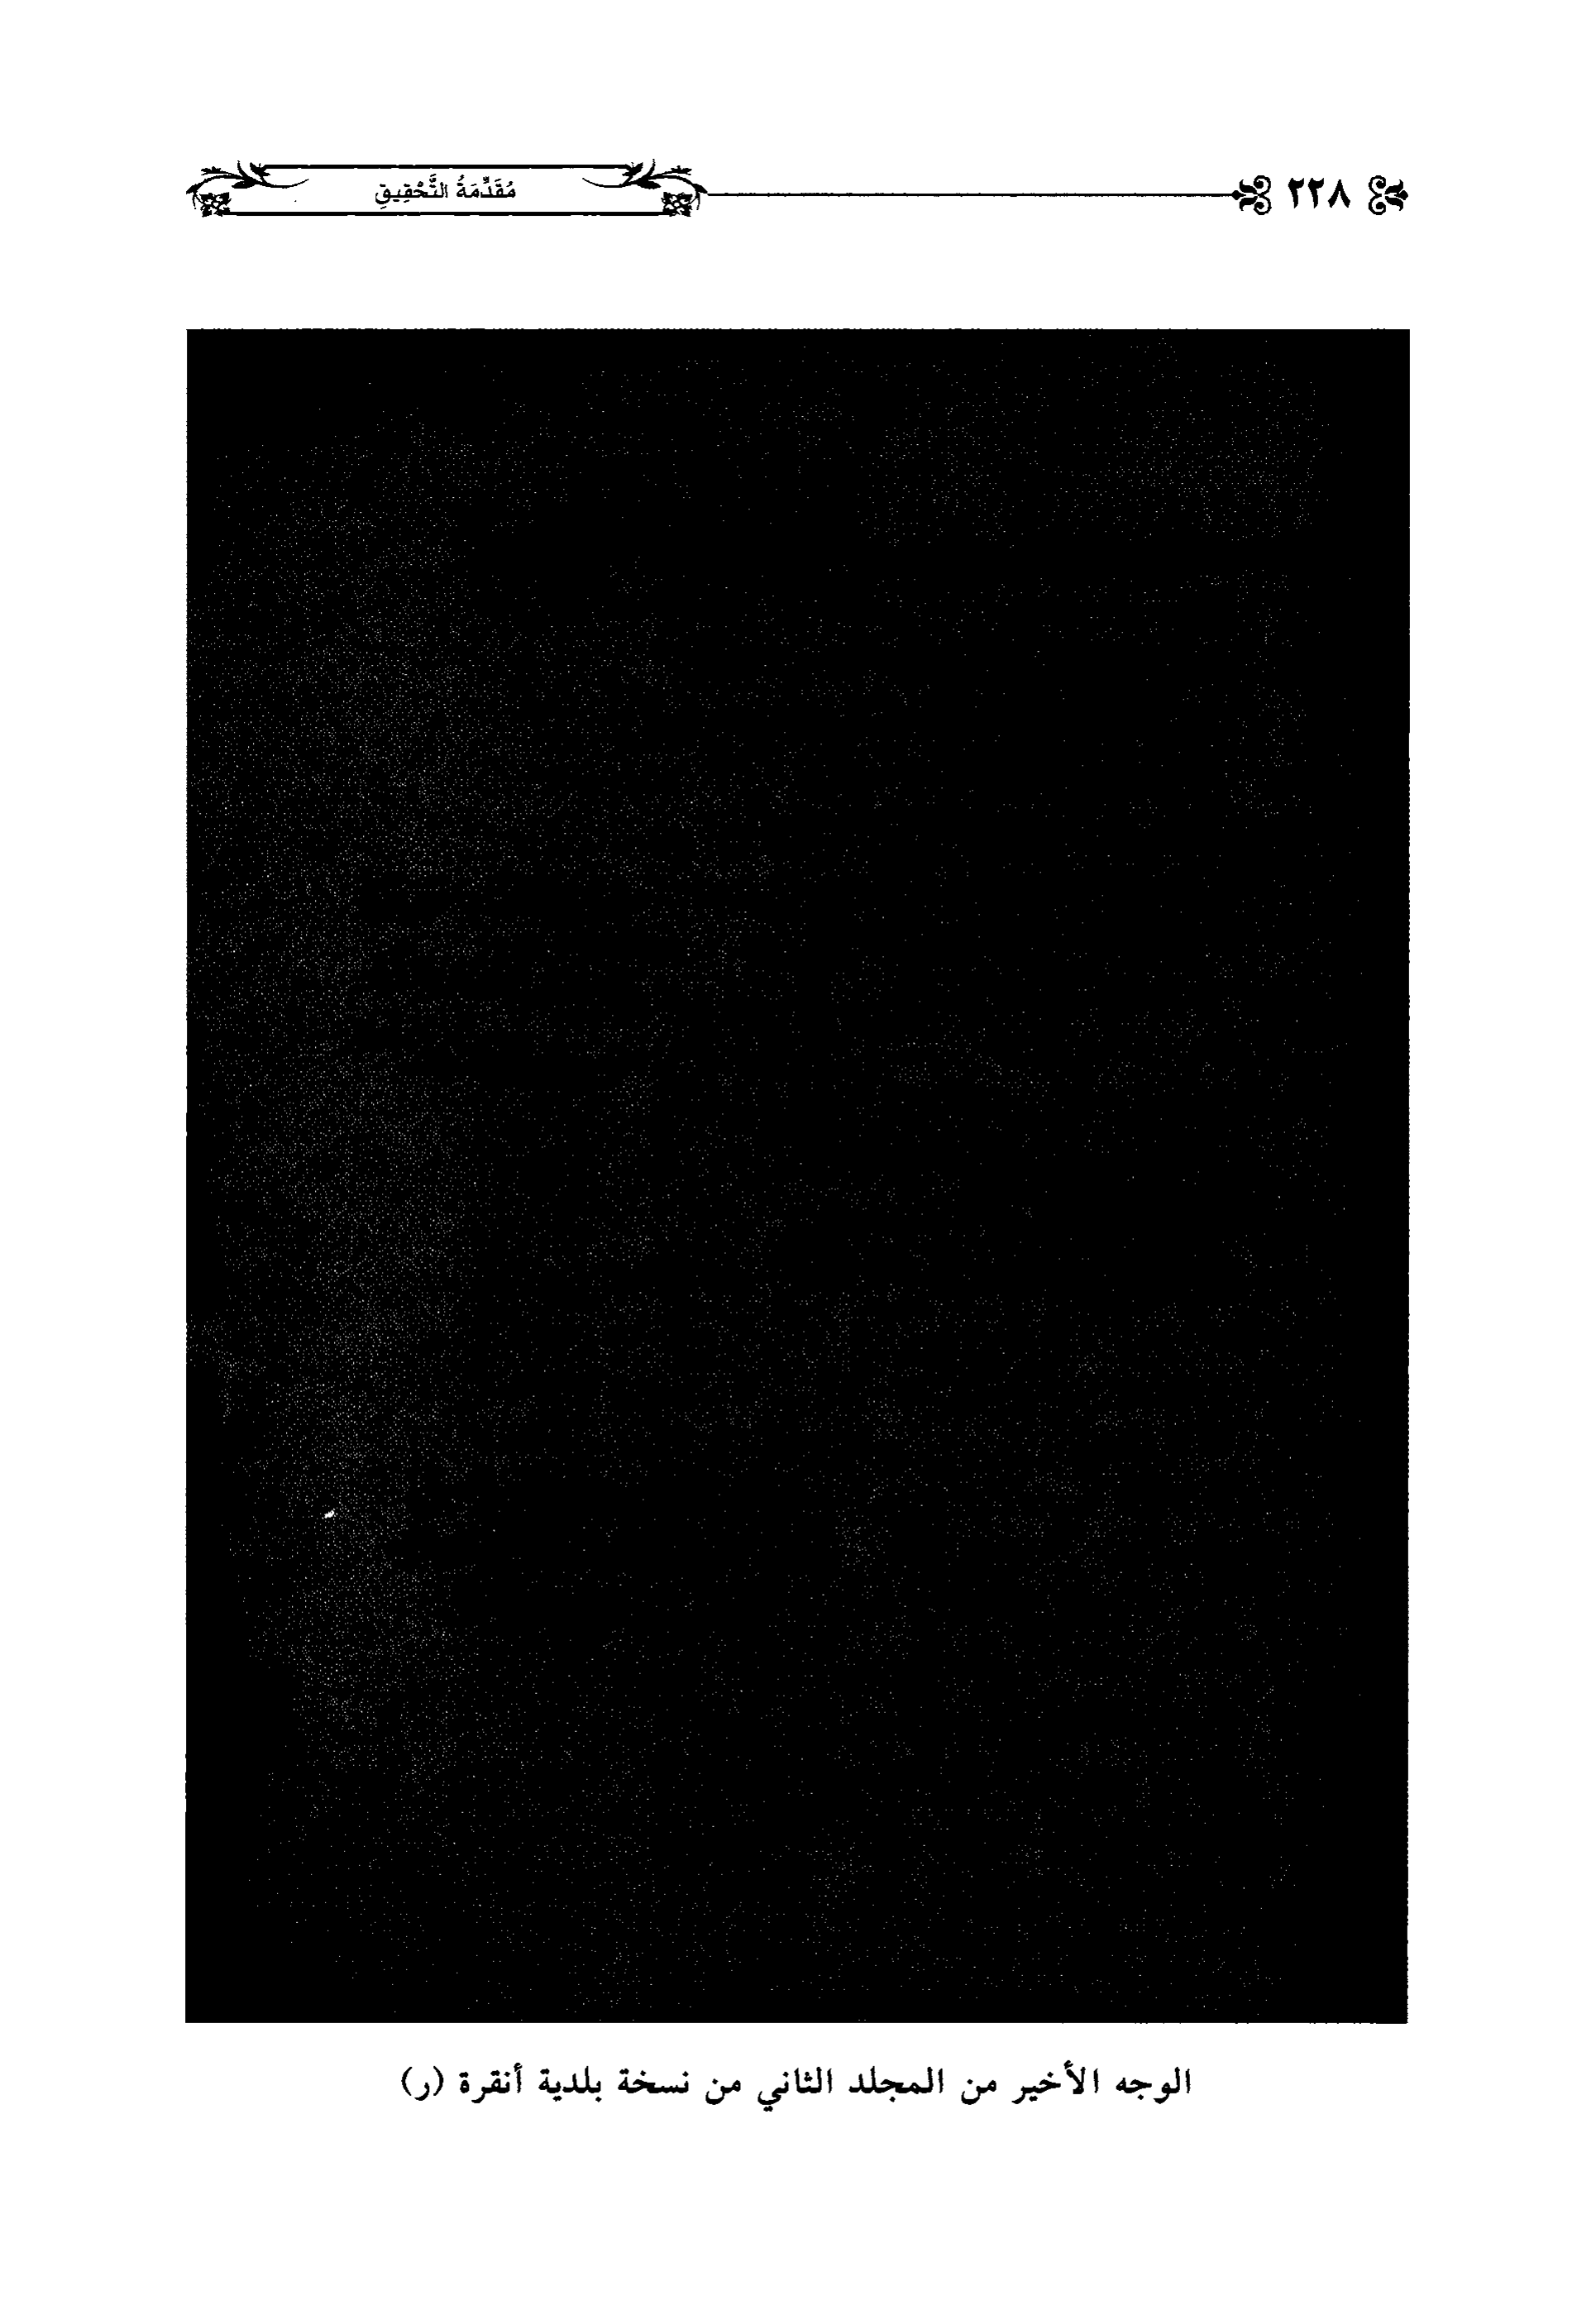 ٢٢٨
مُقَدِّمَةُ التَّحْقِيقِ
الوجه الأخير من المجلد الثاني من نسخة بلدية أنقرة (ر)